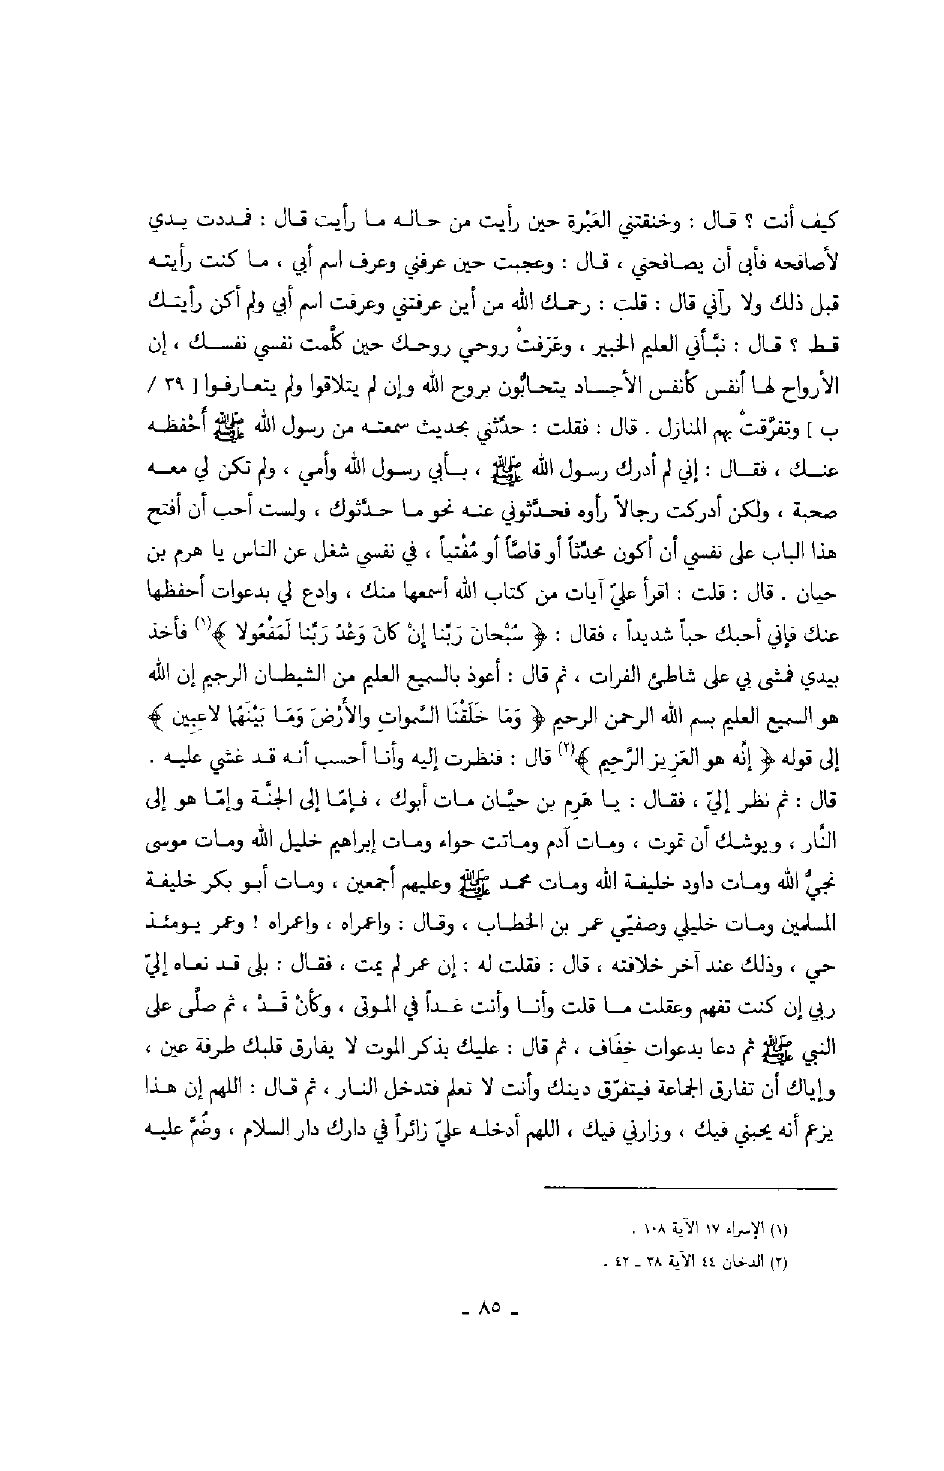 كيف أنت ؟ قال : وخنقتني العَبْرة حين رأيت من حاله ما رأيت قال : فمددت يدي
لأصافحه فأبى أن يصافحني ، قال : وعجبت حين عرفني وعرف اسم أبي ، ما كنت رأيته
قبل ذلك ولا رآني قال : قلت : رحمك الله من أين عرفتني وعرفت اسم أبي ولم أكن رأيتك
قط ؟ قال : نبّأني العليم الخبير ، وعَرَفتْ روحي روحك حين كلَّمت نفسي نفسك ، إن
الأرواح لها أنفس كأنفس الأجساد يتحابُّون بروح الله وإن لم يتلاقوا ولم يتعارفوا [ ٣٩ /
ب ] وتفرَّقتْ بهم المنازل . قال : فقلت : حدّثني بحديث سمعته من رسول الله ﷺ أحْفظه
عنك ، فقال : إني لم أدرك رسول الله ﷺ ، بأبي رسول الله وأمي ، ولم تكن لي معه
صحبة ، ولكن أدركت رجالاً رأوه فحدّثوني عنه نحو ما حدّثوك ، ولست أحب أن أفتح
هذا الباب على نفسي أن أكون محدّثاً أو قاصّاً أو مُفْتياً ، في نفسي شغل عن الناس يا هرم بن
حيان . قال : قلت : اقرأ عليّ آيات من كتاب الله أسمعها منك ، وادع لي بدعوات أحفظها
عنك فإني أحبك حباً شديداً ، فقال : ﴿ سُبْحانَ رَبِّنا إنْ كانَ وَعْدُ رَبِّنا لَمَفْعُولا ﴾(١) فأخذ
بيدي فمشى بي على شاطئ الفرات ، ثم قال : أعوذ بالسميع العليم من الشيطان الرجيم إن الله
هو السميع العليم بسم الله الرحمن الرحيم ﴿ وَمَا خَلَقْنَا السَّموات والأرْضَ وَمَا بَيْنَهُما لاعِبين ﴾
إلى قوله ﴿ إنَّه هو العَزِيز الرَّحِيم ﴾(٢) قال : فنظرت إليه وأنا أحسب أنه قد غشي عليه .
قال : ثم نظر إليّ ، فقال : يا هَرِم بن حيَّان مات أبوك ، فإمّا إلى الجنَّة وإمّا هو إلى
النَّار ، ويوشك أن تموت ، ومات آدم وماتت حواء ومات إبراهيم خليل الله ومات موسى
نجيُّ الله ومات داود خليفة الله ومات محمد ﷺ وعليهم أجمعين ، ومات أبو بكر خليفة
المسلمين ومات خليلي وصفيّي عمر بن الخطاب ، وقال : واعمراه ، واعمراه ! وعمر يومئذ
حي ، وذلك عند آخر خلافته ، قال : فقلت له : إن عمر لم يمت ، فقال : بلى قد نعاه إليّ
ربي إن كنت تفهم وعقلت ما قلت وأنا وأنت غداً في الموتى ، وكأنْ قَدْ ، ثم صلَّى على
النبي ﷺ ثم دعا بدعوات خِفَاف ، ثم قال : عليك بذكر الموت لا يفارق قلبك طرفة عين ،
وإياك أن تفارق الجماعة فيتفرّق دينك وأنت لا تعلم فتدخل النار ، ثم قال : اللهم إن هذا
يزعم أنه يحبني فيك ، وزارني فيك ، اللهم أدخله عليّ زائراً في دارك دار السلام ، وضُمَّ عليه
(١) الإسراء ١٧ الآية ١٠٨ .
(٢) الدخان ٤٤ الآية ٣٨ ـ ٤٢ .
ـ ٨٥ ـ